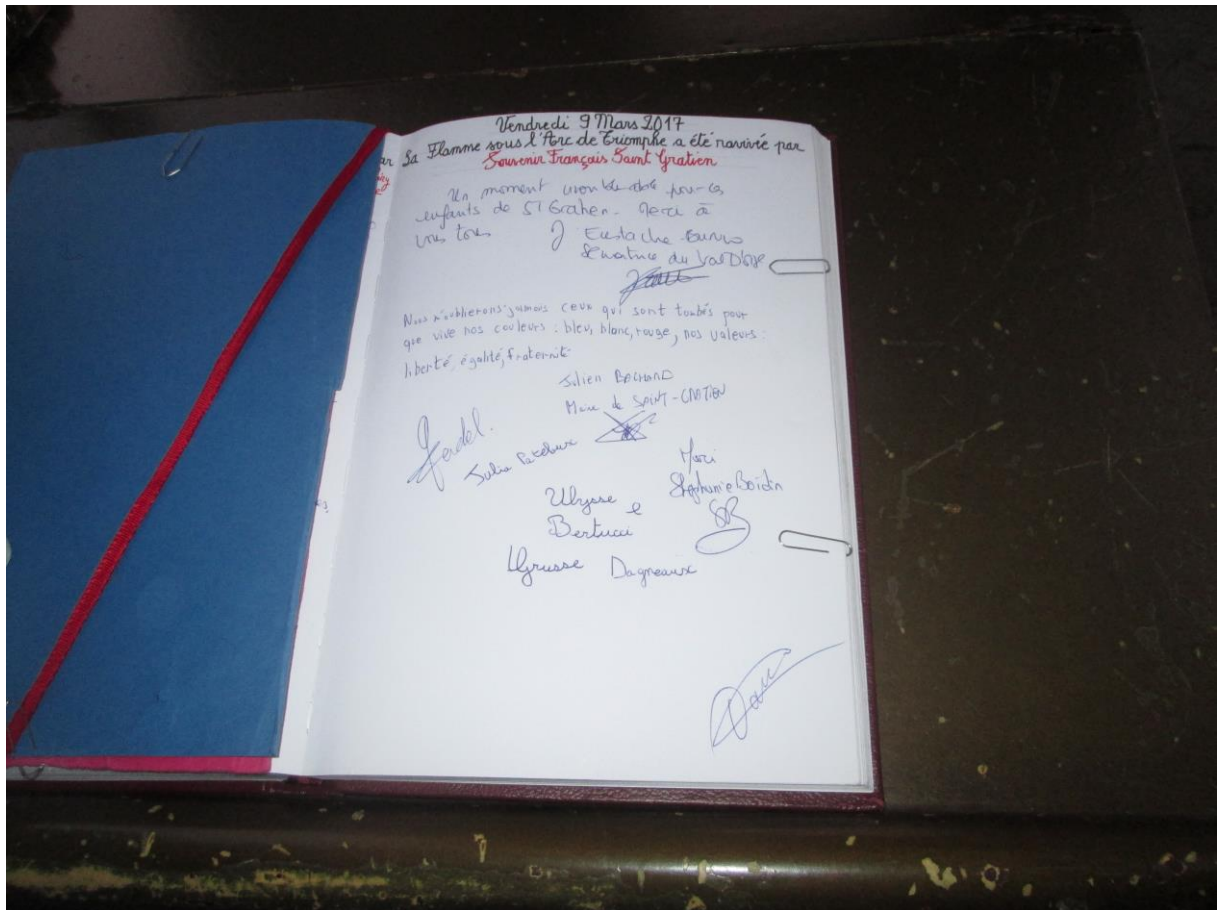 Vendredi 9 Mars 2017
La Flamme sous l'Arc de Triomphe a été ravivée par
Souvenir Français Saint Gratien
Un moment pour les
enfants de St Gratien. Merci à
vous tous J Eustache Brinio
Sénatrice du Val D'oise
Nous n'oublierons jamais ceux qui sont tombés pour
que vive nos couleurs : bleu, blanc, rouge, nos valeurs :
liberté, égalité, fraternité
Julien BACHARD
Maire de SAINT-GRATIEN
Julia
Merci
Stéphanie Boidin
SB
Ulysse
Bertucci
Dagneaux